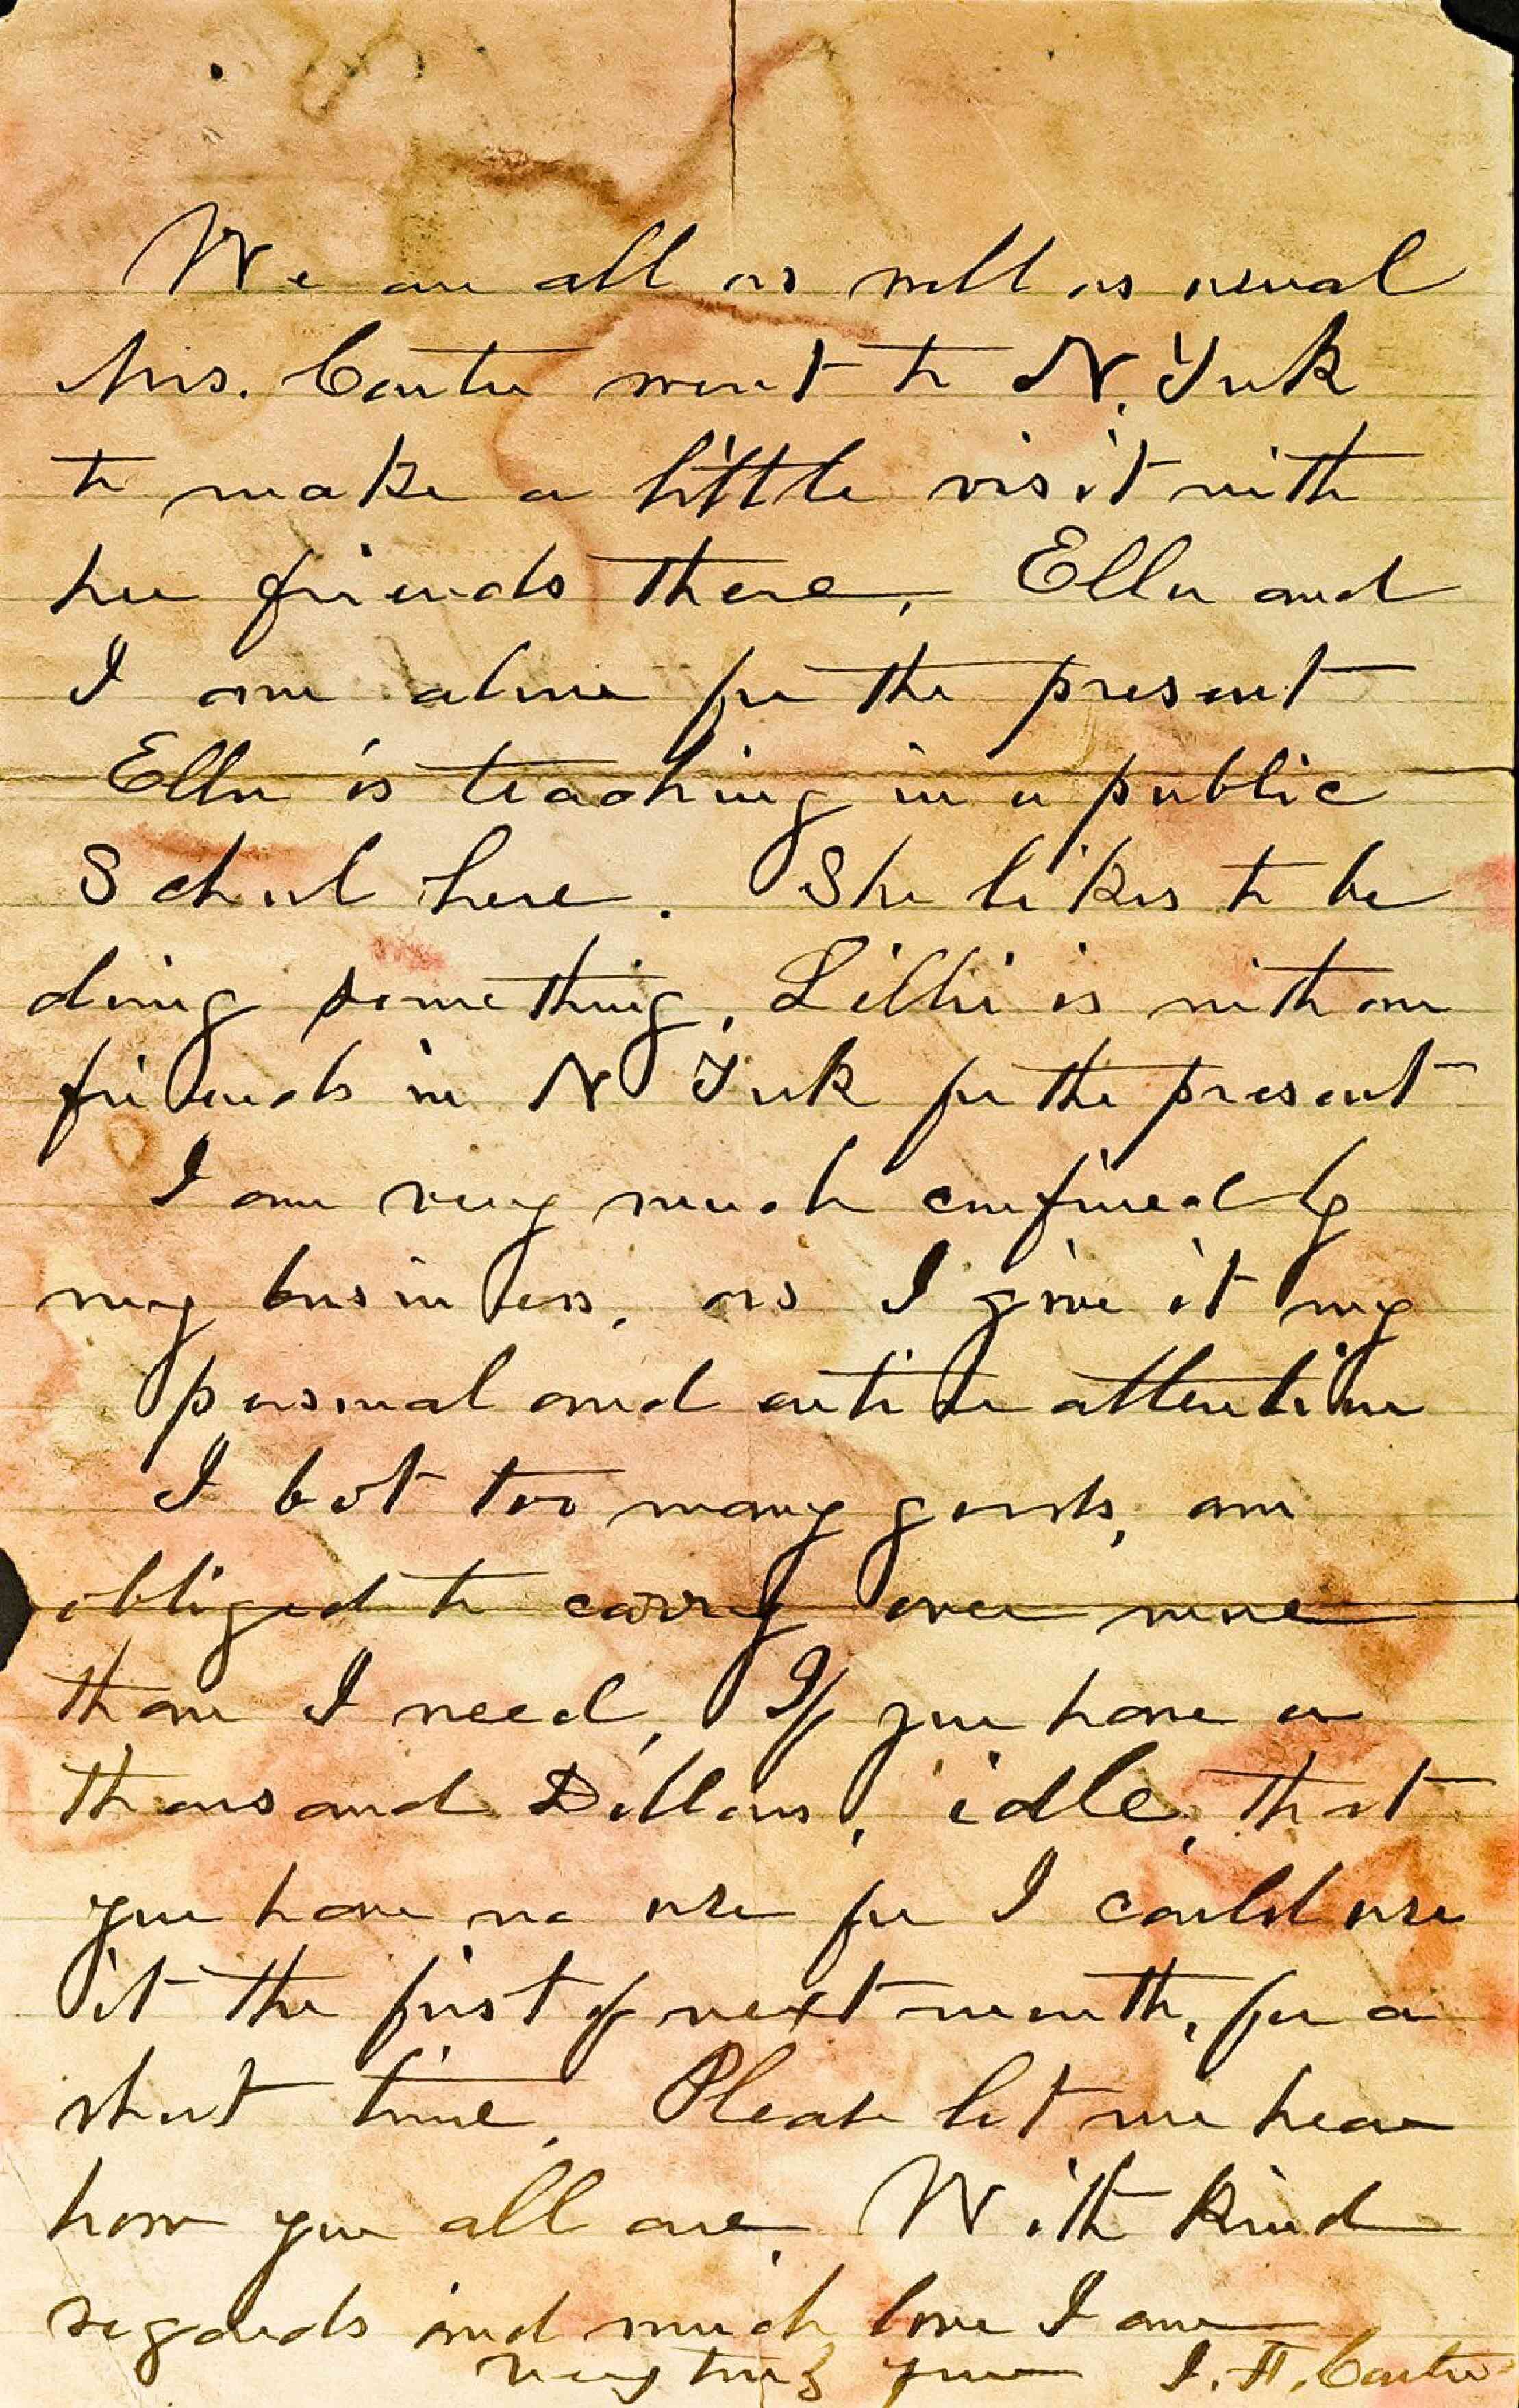 We are all as well as usual
Mrs. Carter went to N. York
to make a little visit with
her friends there, Ella and
I are alone for the present
Ella is teaching in a public
School here. She likes to be
doing something, Lillie is with our
friends in N York for the present
I am very much confined by
my business, as I give it my
personal and entire attention
I bot too many goods, am
obliged to carry over more
than I need, If you have a
thousand Dollars, idle, that
you have no use for I could use
it the first of next month, for a
short time, Please let me hear
how you all are. With kind
regards and much love I am
very truly yours J. H. Carter